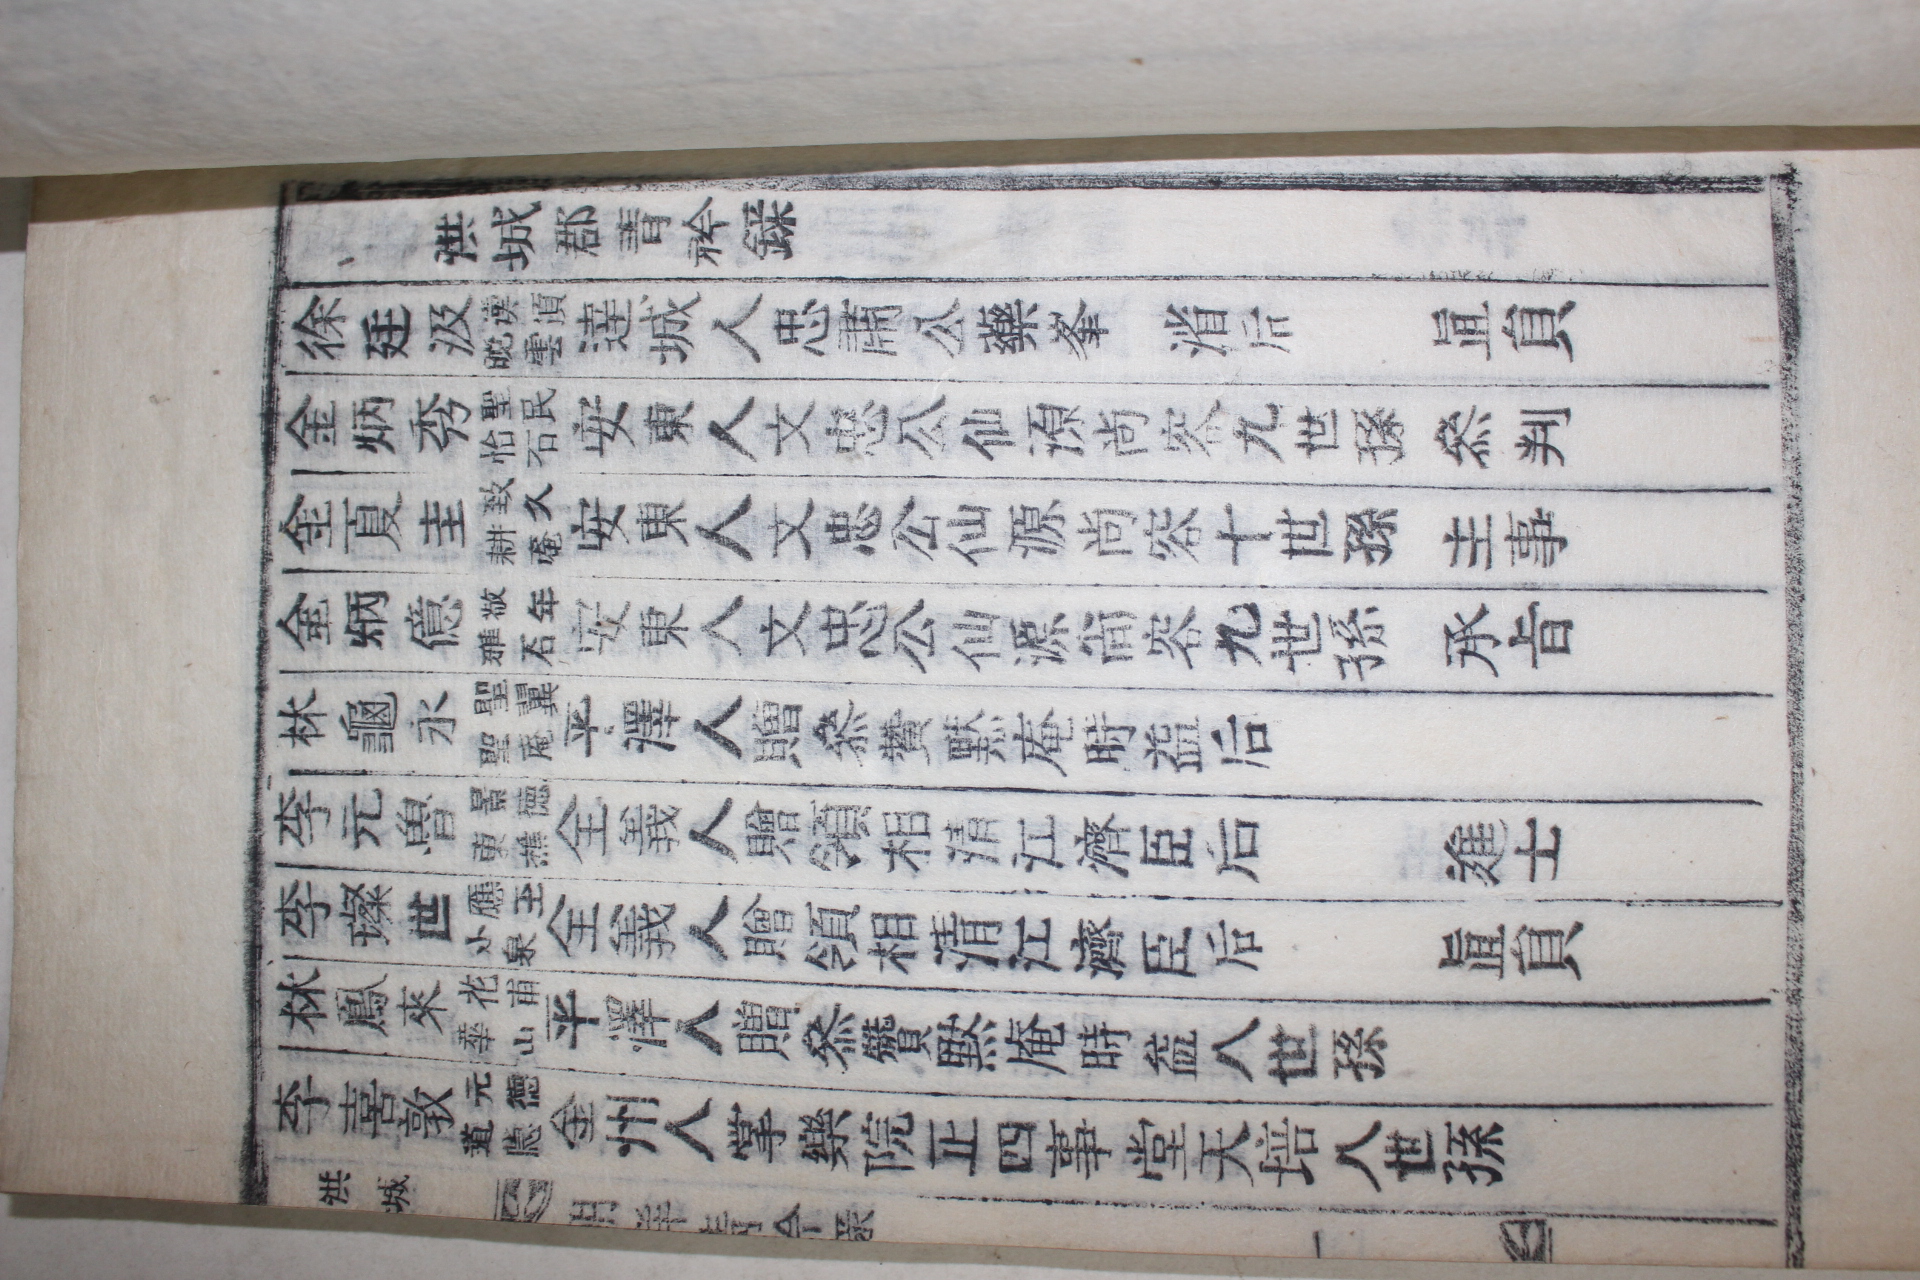 洪城郡靑衿錄
徐廷汲 漢湏 晚雲 達城人忠肅公藥峯 渻后 直員
金炳秀 聖民 怡石 安東人文忠公仙源尙容九世孫 參判
金夏圭 致久 耕庵 安東人文忠公仙源尙容十世孫 主事
金炳億 敬年 雅石 安東人文忠公仙源尙容九世孫 承旨
林龜永 聖翼 聖庵 平澤人贈參贊默庵時益后
李元魯 景德 東樵 全義人贈領相淸江濟臣后 進士
李璨世 應玉 小泉 全義人贈領相淸江濟臣后 直員
林鳳來 花甫 華山 平澤人贈參贊默庵時益八世孫
李喜敦 元德 道隱 全州人掌樂院正四事堂天培八世孫
洪城